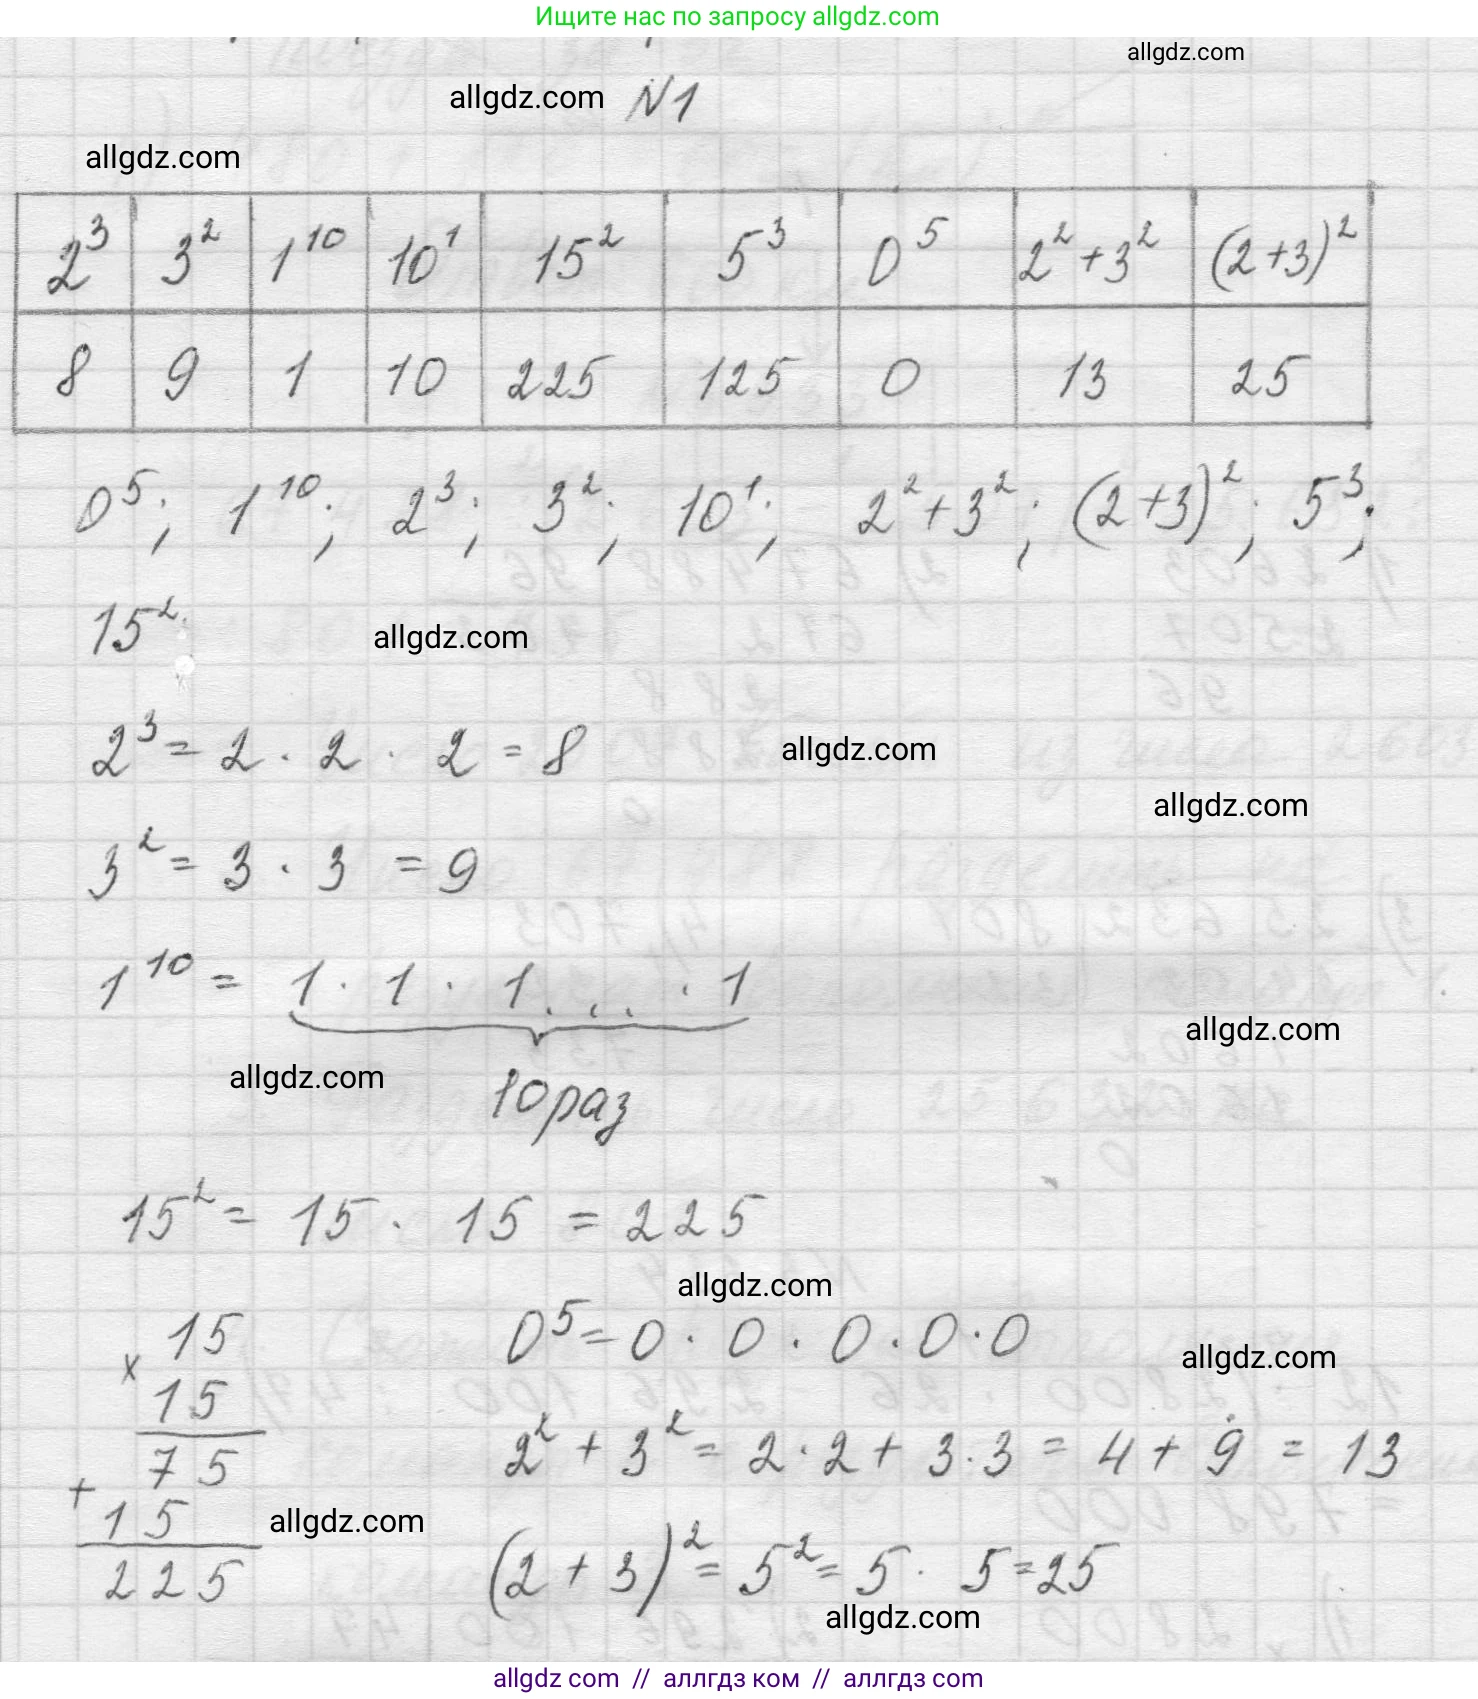 Ищите нас по запросу allgdz.com
allgdz.com
allgdz.com N1
allgdz.com
2³ 3² 1¹⁰ 10¹ 15² 5³ 0⁵ 2²+3² (2+3)²
8 9 1 10 225 125 0 13 25
0⁵; 1¹⁰; 2³; 3²; 10¹; 2²+3²; (2+3)²; 5³;
15².
allgdz.com
2³ = 2 · 2 · 2 = 8
allgdz.com
allgdz.com
3² = 3 · 3 = 9
1¹⁰ = 1 · 1 · 1 . . . · 1
allgdz.com
allgdz.com
10 раз
15² = 15 · 15 = 225
allgdz.com
15
x
15
75
+
15
225
0⁵ = 0 · 0 · 0 · 0 · 0
allgdz.com
2² + 3² = 2 · 2 + 3 · 3 = 4 + 9 = 13
allgdz.com
(2 + 3)² = 5² = 5 · 5 = 25
allgdz.com
allgdz com // аллгдз ком // аллгдз com